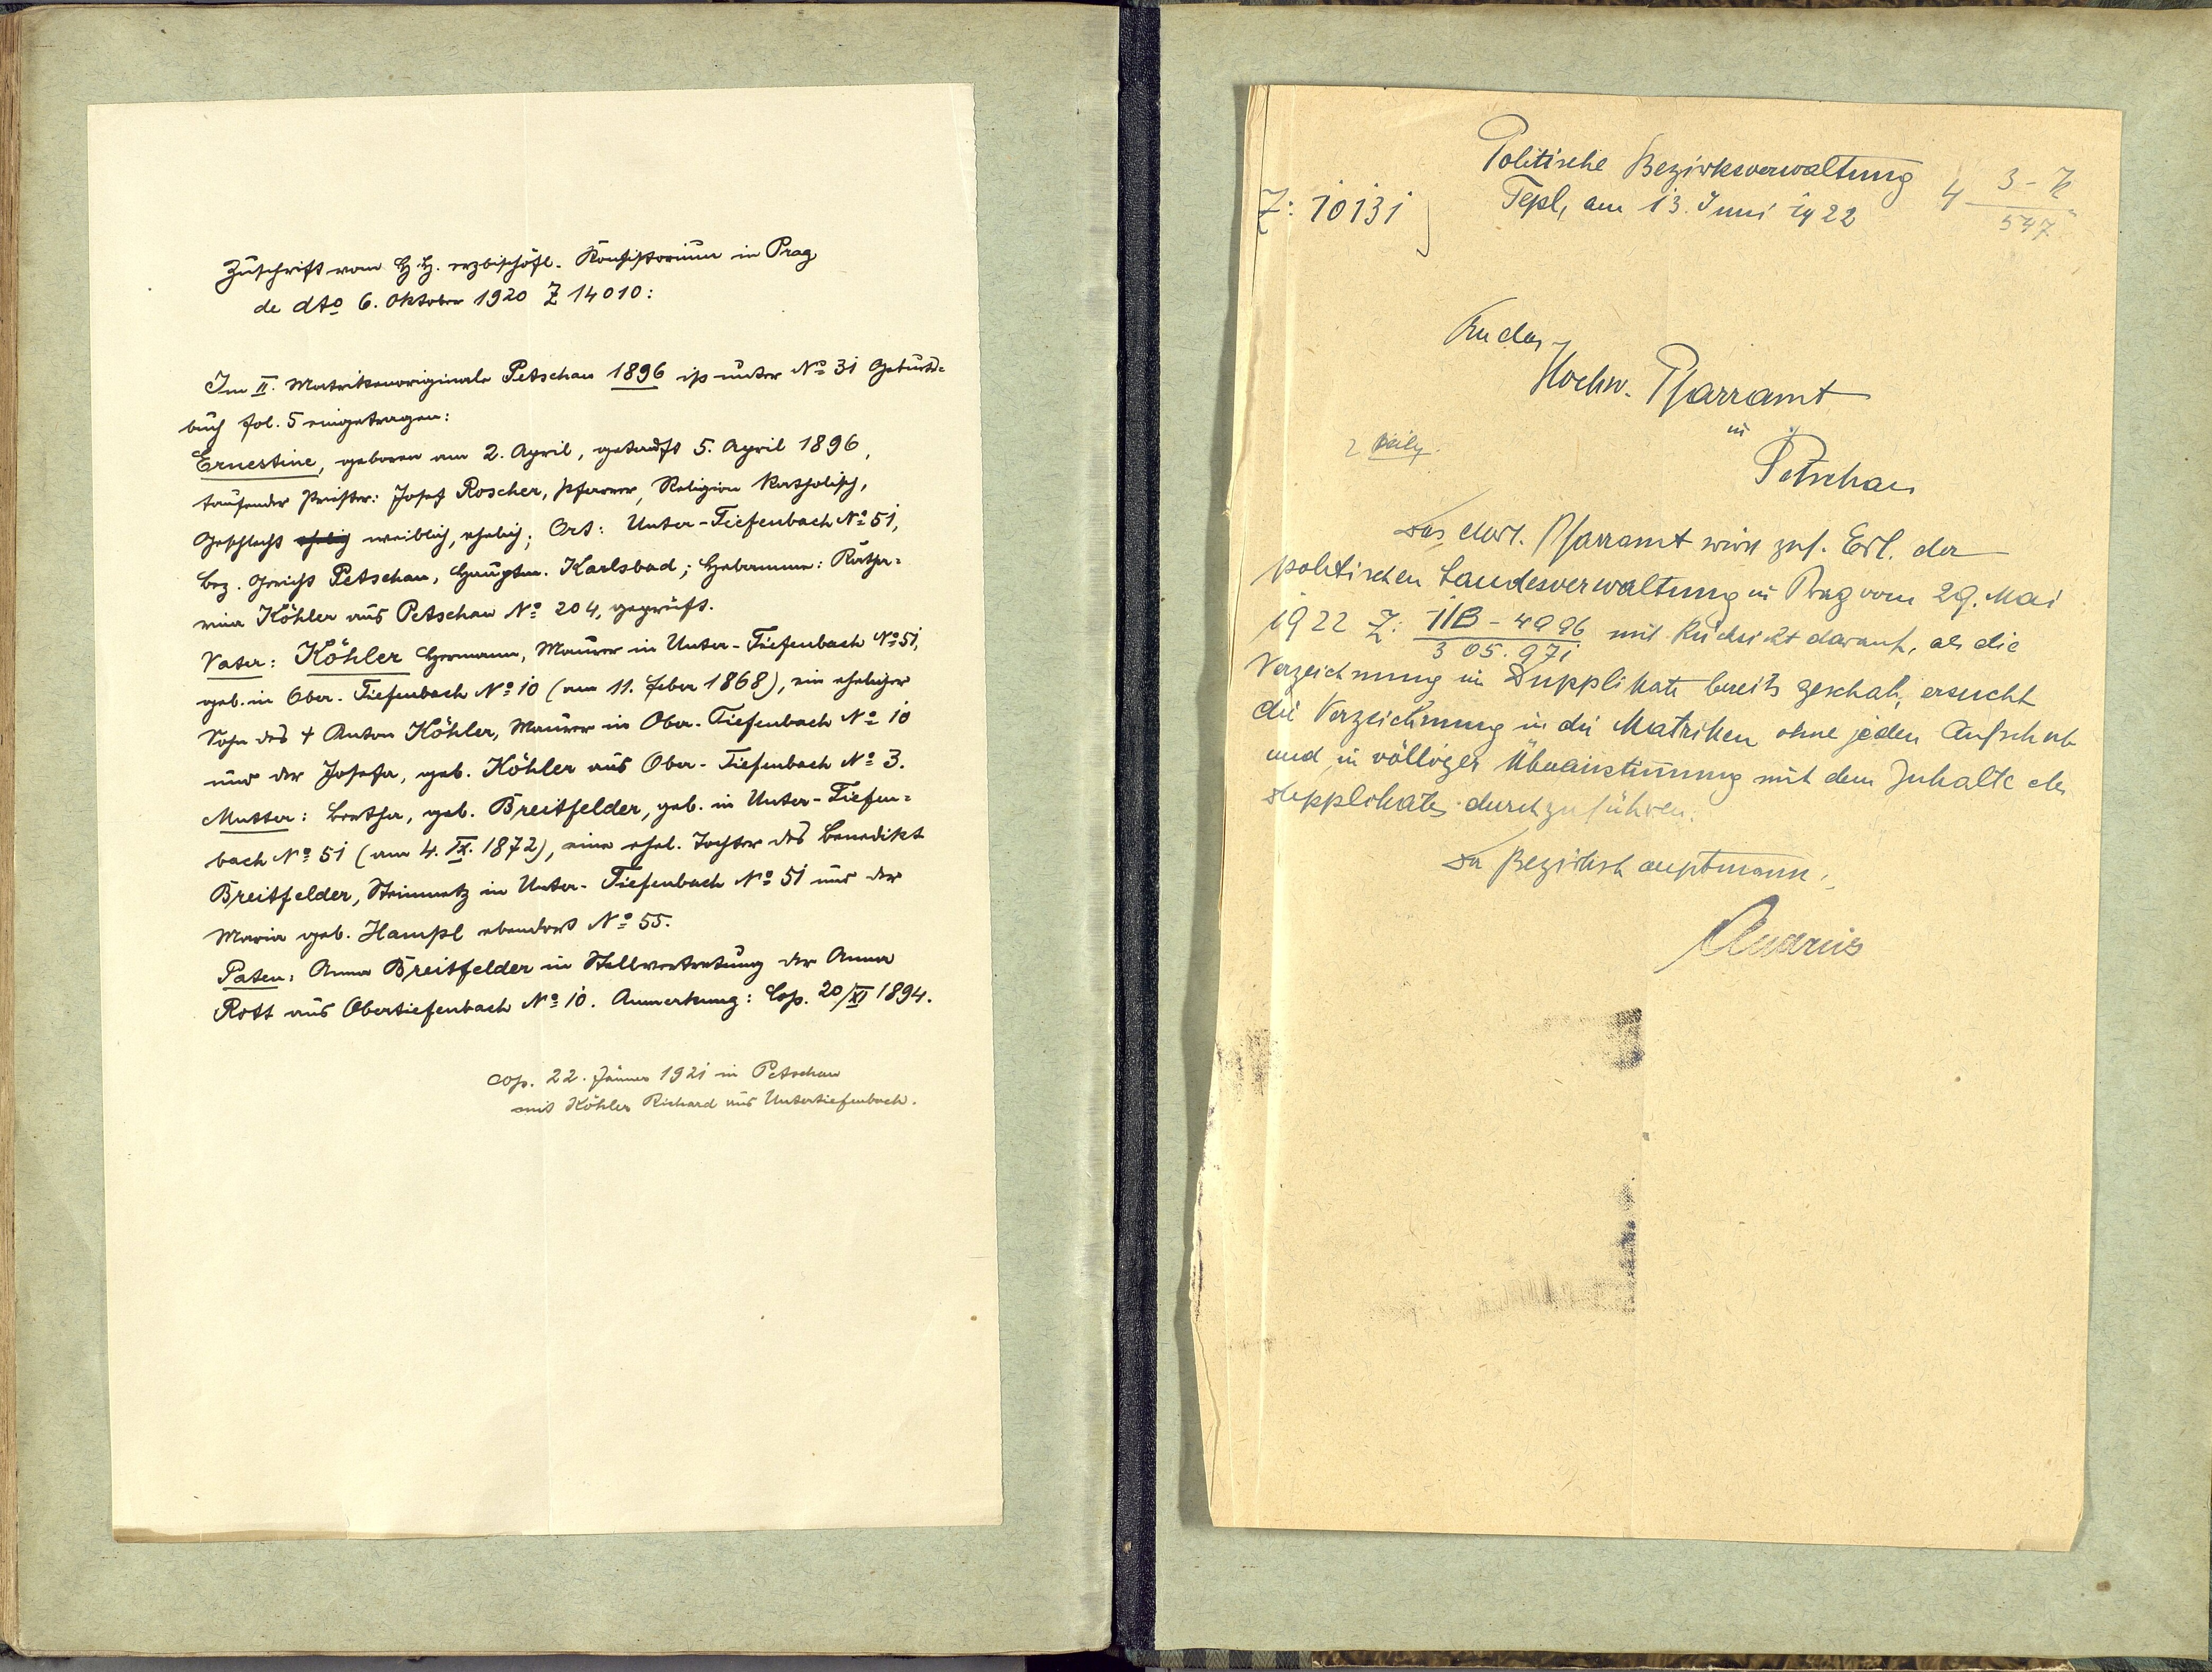 Zuschrift vom H. H. erzbischöfl. Konsistorium in Prag
de dto 6. Oktober 1920 Z 14010:
Im II. Matrikenoriginale Petschau 1896 ist unter No 31 Geburts-
buch fol. 5 eingetragen:
Ernestine, geboren am 2. April, getauft 5. April 1896,
taufender Priester: Josef Roscher, Pfarrer, Religion katholisch,
Geschlecht ehelig weiblich, ehelich; Ort: Unter-Tiefenbach No 51,
Bez. Gericht Petschau, Hauptm. Karlsbad; Hebamme: Katha-
rina Köhler aus Petschau No 204, geprüft.
Vater: Köhler Hermann, Maurer in Unter-Tiefenbach No 51,
geb. in Ober-Tiefenbach No 10 (am 11. Feber 1868), ein ehelicher
Sohn des † Anton Köhler, Maurer in Ober-Tiefenbach No 10
und der Josefa, geb. Köhler aus Ober-Tiefenbach No 3.
Mutter: Bertha, geb. Breitfelder, geb. in Unter-Tiefen-
bach No 51 (am 4. IX. 1872), eine ehel. Tochter des Benedikt
Breitfelder, Steinmetz in Unter-Tiefenbach No 51 und der
Maria geb. Hampl ebendort No 55.
Paten: Anna Breitfelder in Stellvertretung der Anna
Rott aus Obertiefenbach No 10. Anmerkung: Cop. 20/XI 1894.
cop. 22. Jänner 1921 in Petschau
mit Köhler Richard aus Untertiefenbach.
Politische Bezirksverwaltung
Z: 10131 Tepl, am 13. Juni 1922
4 3-
547
An das
Hochw. Pfarramt
in
Petschau
2 Beilg.
Das dort. Pfarramt wird zuf. Erl. der
politischen Landesverwaltung in Prag vom 29. Mai
1922 Z: 11B-4996
305.971 mit Rücksicht darauf, als die
Verzeichnung im Dupplikate bereits geschah, ersucht
die Verzeichnung in die Matriken ohne jeden Aufschub
und in völliger Übereinstimmung mit dem Inhalte des
Dupplikates durchzuführen.
Der Bezirkshauptmann: